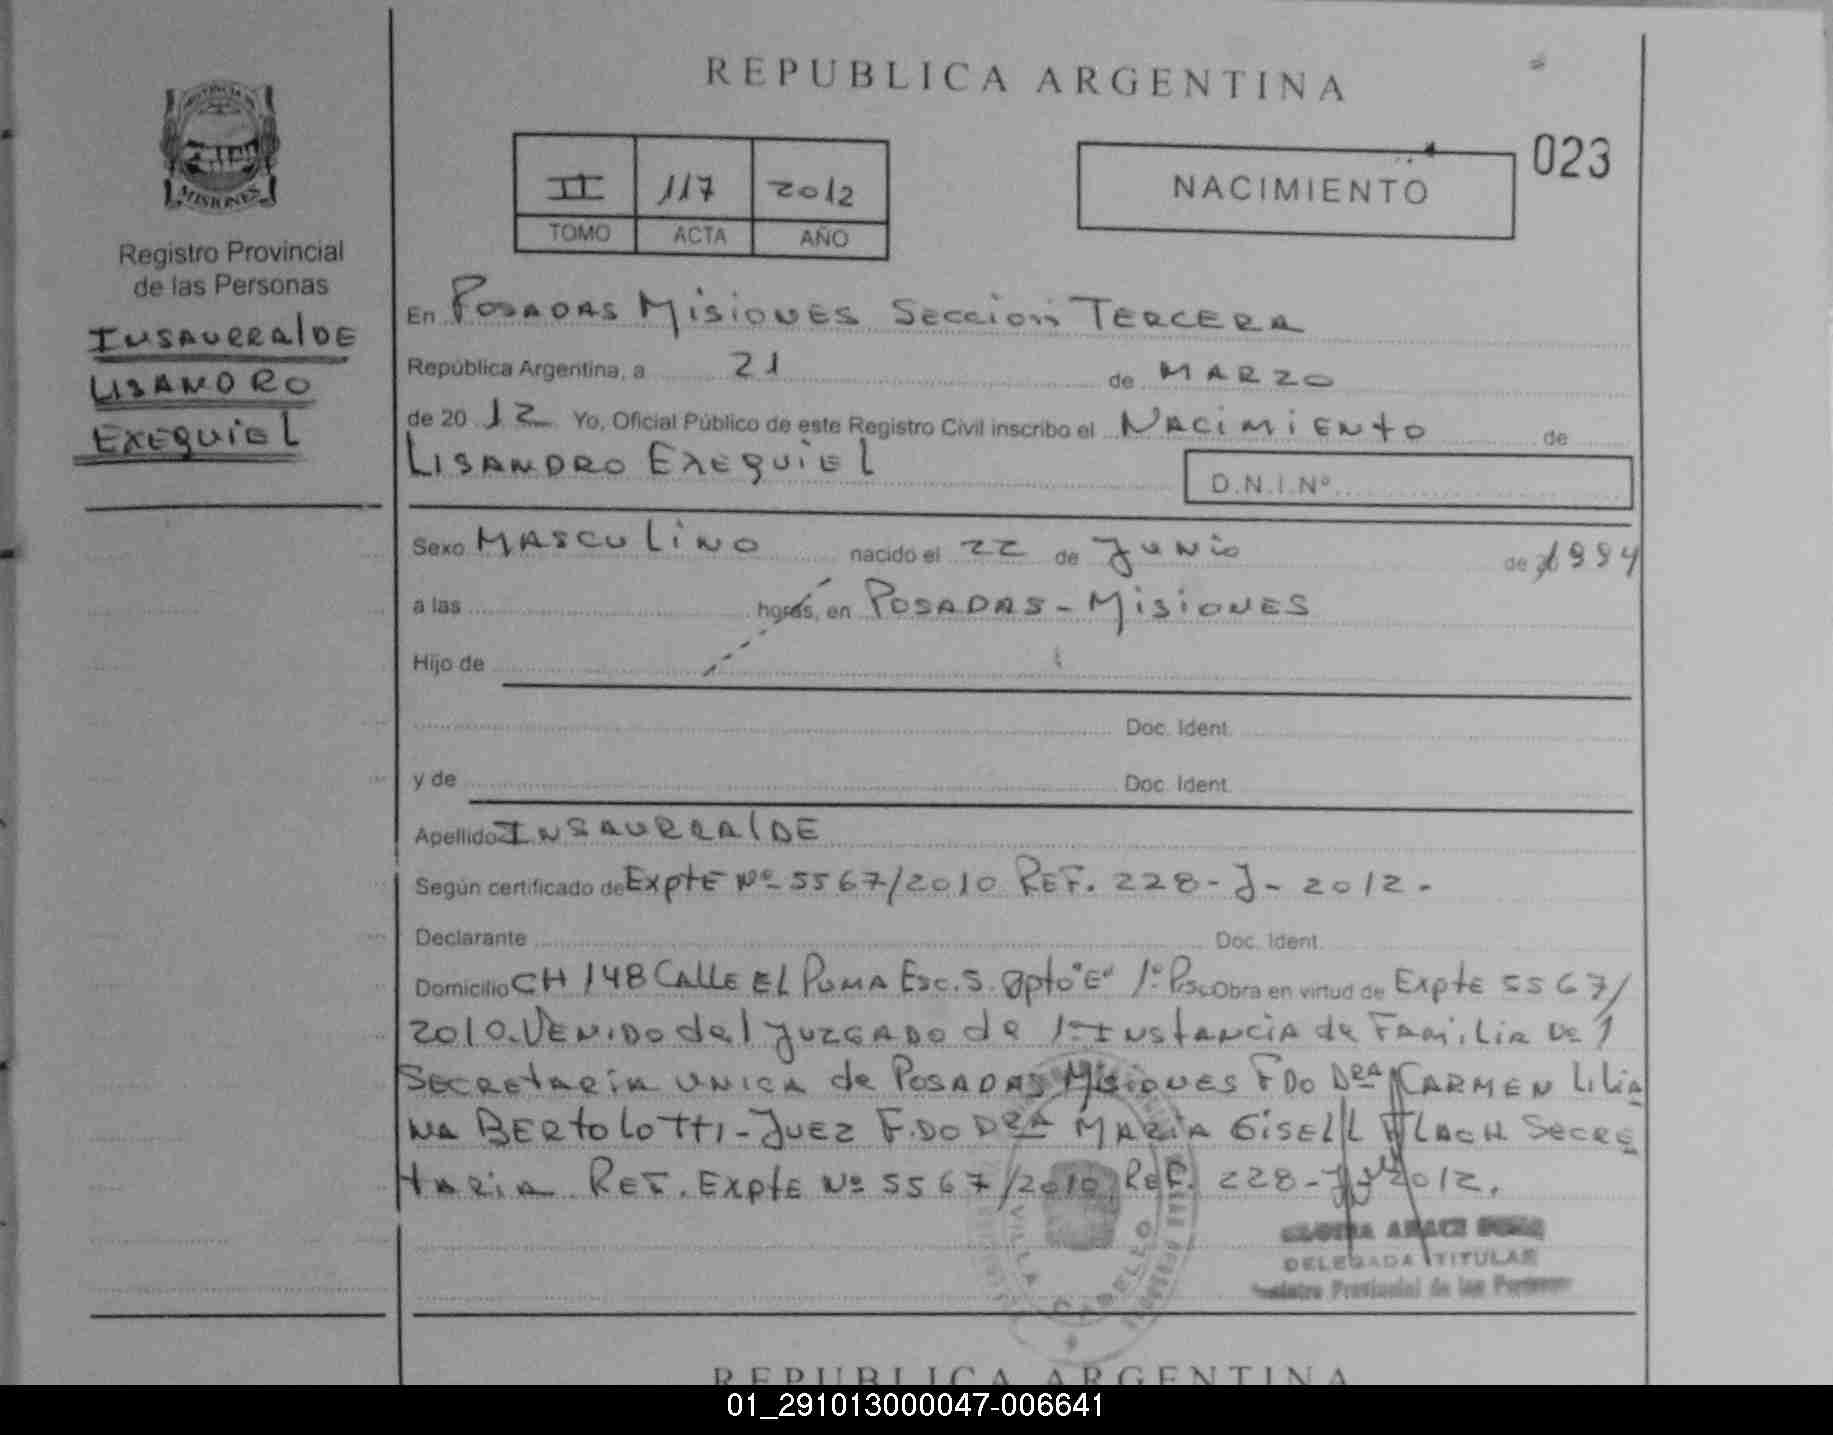 REPUBLICA ARGENTINA
023
II 117 2012
TOMO ACTA AÑO
NACIMIENTO
MISIONES
Registro Provincial
de las Personas
INSAURRALDE
LISANDRO
EXEQUIEL
En POSADAS MISIONES SECCION TERCERA
República Argentina, a 21 de MARZO
de 20 12 Yo, Oficial Público de este Registro Civil inscribo el NACIMIENTO de
LISANDRO EXEQUIEL
D.N.I.Nº
Sexo MASCULINO nacido el 22 de JUNIO de 1994
a las horas, en POSADAS - MISIONES
Hijo de
Doc. Ident.
y de Doc. Ident.
Apellido INSAURRALDE
Según certificado de EXPTE Nº 5567/2010 REF. 228-J-2012.
Declarante Doc. Ident.
Domicilio CH 148 CALLE EL PUMA ESC. 5. Dpto "E" 1º Obra en virtud de Expte 5567/
2010. VENIDO del JUZGADO de 1ª INSTANCIA de FAMILIA Nº 1
SECRETARIA UNICA de POSADAS MISIONES FDO DRA CARMEN LILIA
NA BERTOLOTTI - JUEZ F.DO DRA MARIA GISELL FLACH SECRE
TARIA REF. EXPTE Nº 5567/2010 REF. 228-J-2012.
VILLA CABELLO
DELEGADA TITULAR
Registro Provincial de las Personas
REPUBLICA ARGENTINA
01_291013000047-006641